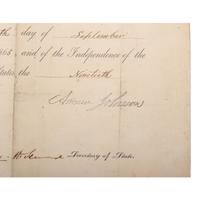 th day of September
865, and of the Independence of the
States, the Ninetieth
Andrew Johnson
Secretary of State.